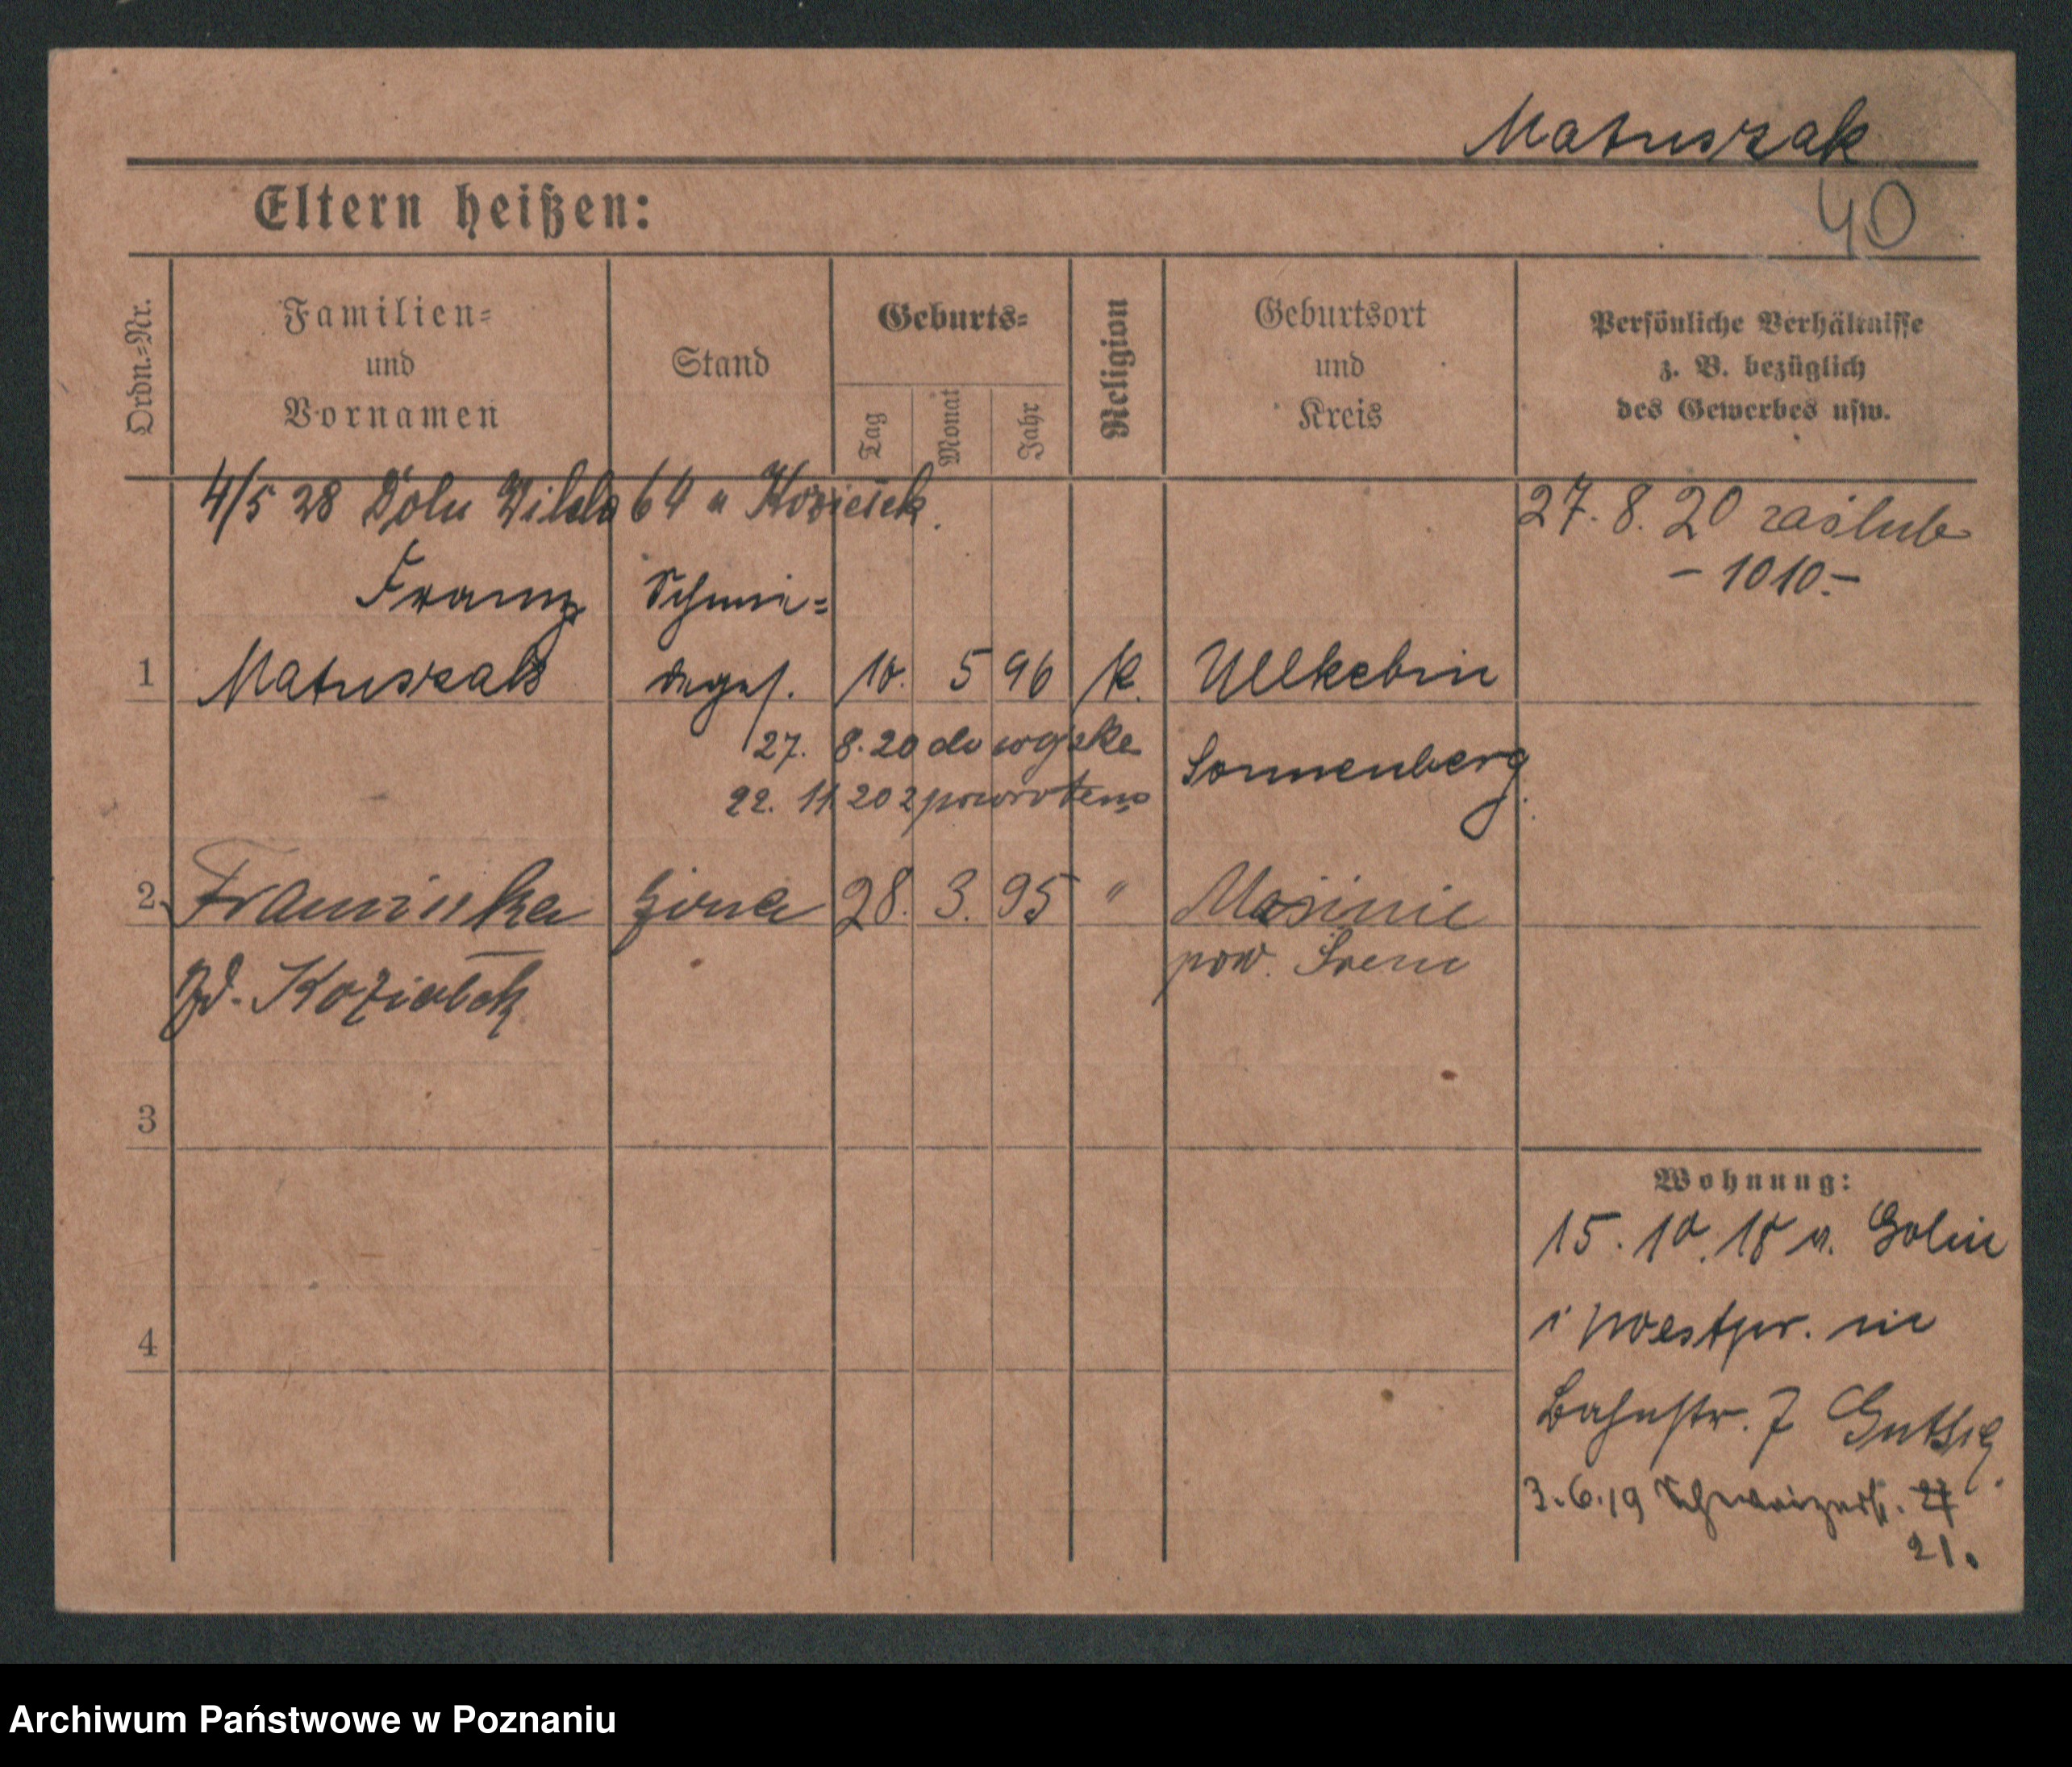 Matuszak
40
Eltern heißen:
Ordn.=Nr.
Familien=
und
Vornamen
Stand
Geburts=
Tag
Monat
Jahr
Religion
Geburtsort
und
Kreis
Persönliche Verhältnisse
z. B. bezüglich
des Gewerbes usw.
4/5 28 Doln Wilda 64 u Koziełek.
27. 8. 20 zaślub
- 1010.-
Franz
Schmie=
1 Matuszak
deges. 10. 5 96 k.
27. 8. 20 do wojska
22. 11 20 z powrotem
Sonnenberg.
2 Franciszka żona 28. 3. 95 "
pow. Śrem
3
4
Wohnung:
15. 10. 18 v.
i Westpr. in
Bahnstr. 7
3.6.19 Schweizerstr. 27
21.
Archiwum Państwowe w Poznaniu